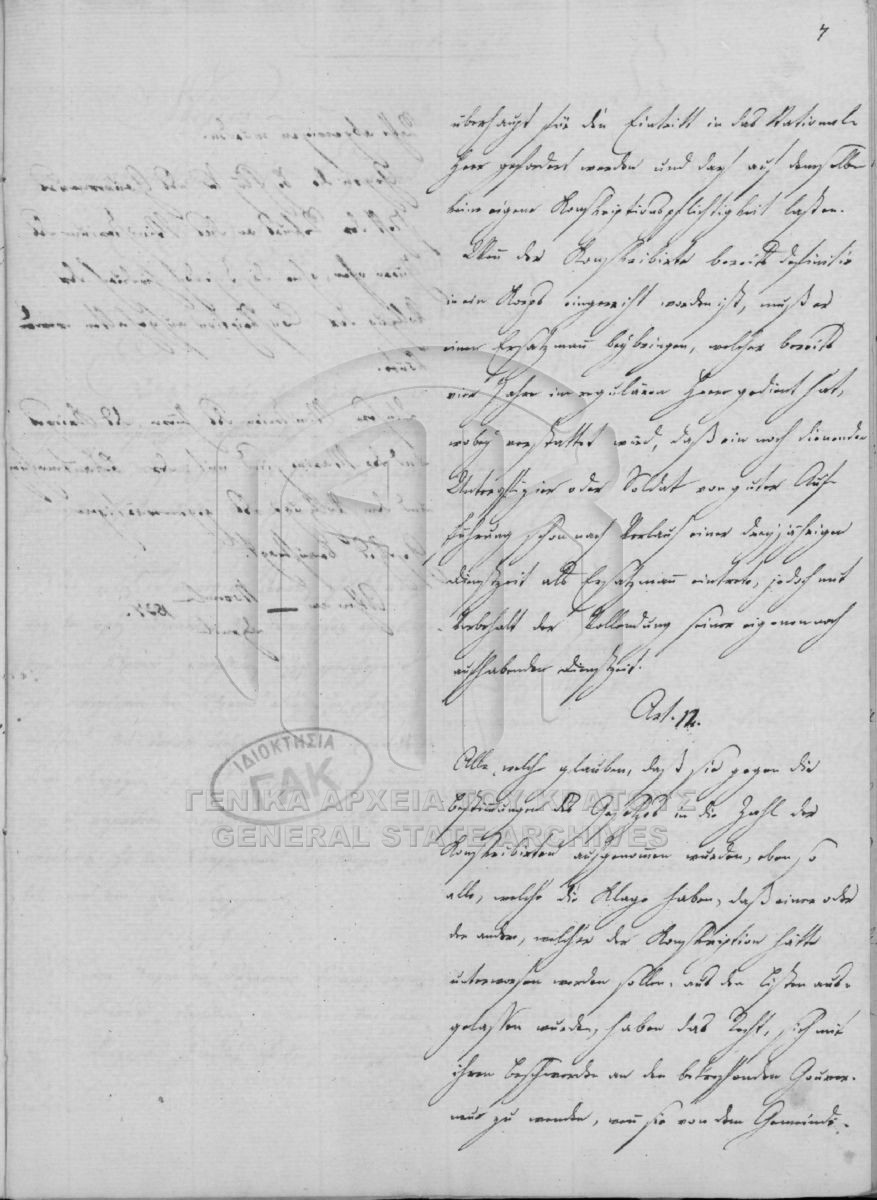 7
überhaupt für den Eintritt in das National-
Heer gefordert werden und darf auf demselben
keine eigene Konskriptionspflichtigkeit lasten.
Wenn der Konskribirte bereits definitiv
in ein Korps eingereiht worden ist, muß er
einen Ersatzmann beybringen, welcher bereits
vier Jahre im regulären Heere gedient hat,
wobey verstattet wird, daß ein noch dienender
Unteroffizier oder Soldat von guter Auf-
führung schon nach Verlauf einer dreyjährigen
Dienstzeit als Ersatzmann eintrete, jedoch mit
Vorbehalt der Vollendung seiner eigenen noch
aufhabenden Dienstzeit.
Art. 12.
Alle, welche glauben, daß sie gegen die
Bestimmungen des Gesetzes in die Zahl der
Konskribirten aufgenommen wurden, eben so
alle, welche die Klage haben, daß einer oder
der andere, welcher der Konskription hätte
unterworfen werden sollen, aus den Listen aus-
gelassen wurden, haben das Recht, sich mit
ihren Beschwerden an den betreffenden Gouver-
neur zu wenden, wenn sie von dem Gemeinds-
ΙΔΙΟΚΤΗΣΙΑ
ΓΑΚ
ΓΕΝΙΚΑ ΑΡΧΕΙΑ ΤΟΥ ΚΡΑΤΟΥΣ
GENERAL STATE ARCHIVES